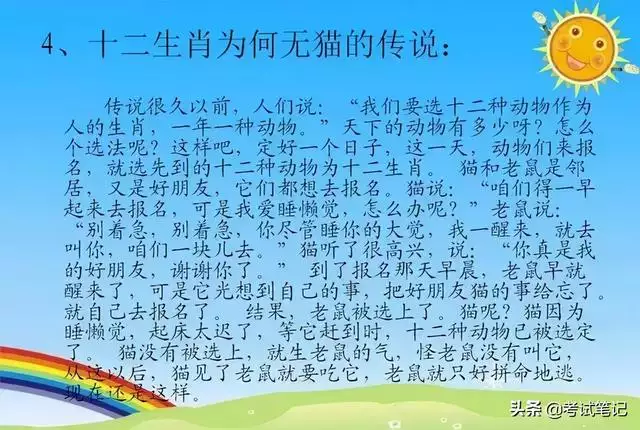 4、十二生肖为何无猫的传说：
传说很久以前，人们说：“我们要选十二种动物作为
人的生肖，一年一种动物。”天下的动物有多少呀？怎么
个选法呢？这样吧，定好一个日子，这一天，动物们来报
名，就选先到的十二种动物为十二生肖。 猫和老鼠是邻
居，又是好朋友，它们都想去报名。猫说：“咱们得一早
起来去报名，可是我爱睡懒觉，怎么办呢？”老鼠说：
“别着急，别着急，你尽管睡你的大觉，我一醒来，就去
叫你，咱们一块儿去。”猫听了很高兴，说：“你真是我
的好朋友，谢谢你了。” 到了报名那天早晨，老鼠早就
醒来了，可是它光想到自己的事，把好朋友猫的事给忘了。
就自己去报名了。 结果，老鼠被选上了。猫呢？猫因为
睡懒觉，起床太迟了，等它赶到时，十二种动物已被选定
了。 猫没有被选上，就生老鼠的气，怪老鼠没有叫它，
从这以后，猫见了老鼠就要吃它，老鼠就只好拼命地逃。
现在还是这样。
头条 @考试笔记